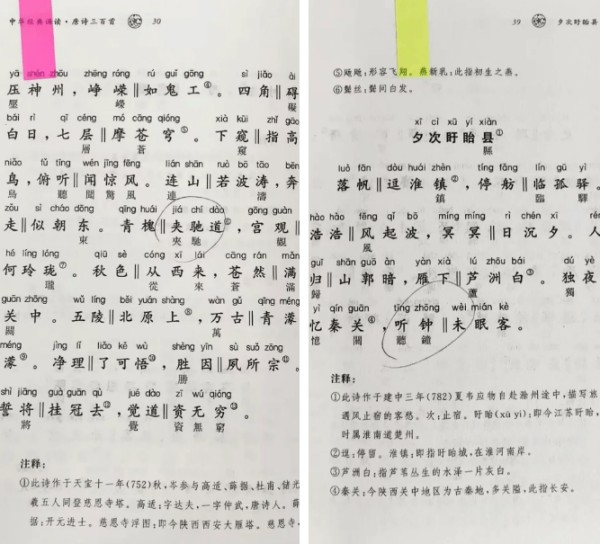 中华经典诵读·唐诗三百首 30
yā shén zhōu zhēng róng rú guǐ gōng sì jiǎo ài
压神州，峥嵘‖如鬼工④。四角‖碍
壓 嶸 礙
bái rì qī céng mó cāng qióng xià kuī zhǐ gāo
白日，七层‖摩苍穹⑤。下窥‖指高
層 蒼 窺
niǎo fǔ tīng wén jīng fēng lián shān ruò bō tāo bēn
鸟，俯听‖闻惊风。连山‖若波涛，奔
鳥 聽聞驚風 連 濤
zǒu sì cháo dōng qīng huái jiá chí dào gōng guān
走‖似朝东。青槐‖夹驰道⑥，宫观‖
東 夾馳 觀
hé líng lóng qiū sè cóng xī lái cāng rán mǎn
何玲珑⑦。秋色‖从西来，苍然‖满
瓏 從來蒼滿
guān zhōng wǔ líng běi yuán shàng wàn gǔ qīng méng
关中。五陵‖北原上⑧，万古‖青濛
關 萬
méng jìng lǐ liǎo kě wù shèng yīn sù suǒ zōng
濛。净理‖了可悟⑨，胜因‖夙所宗⑩。
勝
shì jiāng guà guān qù jué dào zī wú qióng
誓将‖挂冠去⑪，觉道‖资无穷⑫。
將 覺 資無窮
注释：
①此诗作于天宝十一年(752)秋，岑参与高适、薛据、杜甫、储光
羲五人同登慈恩寺塔。高适：字达夫，一字仲武，唐诗人。薛
据：开元进士。慈恩寺浮图：即今陕西西安大雁塔。慈恩寺，
39 夕次盱眙县
⑤飏飏：形容飞翔。燕新乳：此指初生之燕。
⑥鬓丝：鬓间白发。
xī cì xū yí xiàn
夕次盱眙县①
縣
luò fān dòu huái zhèn tíng fǎng lín gū yì
落帆‖逗淮镇②，停舫‖临孤驿。
鎮 臨驛
hào hào fēng qǐ bō míng míng rì chén xī rén
浩浩‖风起波，冥冥‖日沉夕。人
風
guī shān guō àn yàn xià lú zhōu bái dú yè
归‖山郭暗，雁下‖芦洲白③。独夜‖
歸 蘆 獨
yì qín guān tīng zhōng wèi mián kè
忆秦关④，听钟‖未眠客。
憶 關 聽鐘
注释：
①此诗作于建中三年(782)夏韦应物自赴滁州途中，描写旅
遇风止宿的客愁。次：止宿。盱眙(xū yí)：即今江苏盱眙，
时属淮南道楚州。
②逗：停留。淮镇：即指盱眙城，在淮河南岸。
③芦洲白：指芦苇丛生的水泽一片灰白。
④秦关：今陕西关中地区为古秦地，多关隘，此指长安。